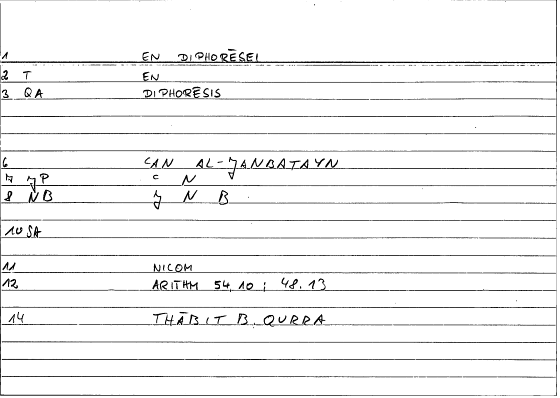 1 EN DIPHORĒSEI
2 T EN
3 QA DIPHORĒSIS
6 ʿAN AL-ǦANBATAYN
7 ǦP ʿ N
8 NB Ǧ N B
10 SA
11 NICOM
12 ARITHM 54,10 ; 48.13
14 THĀBIT B. QURRA